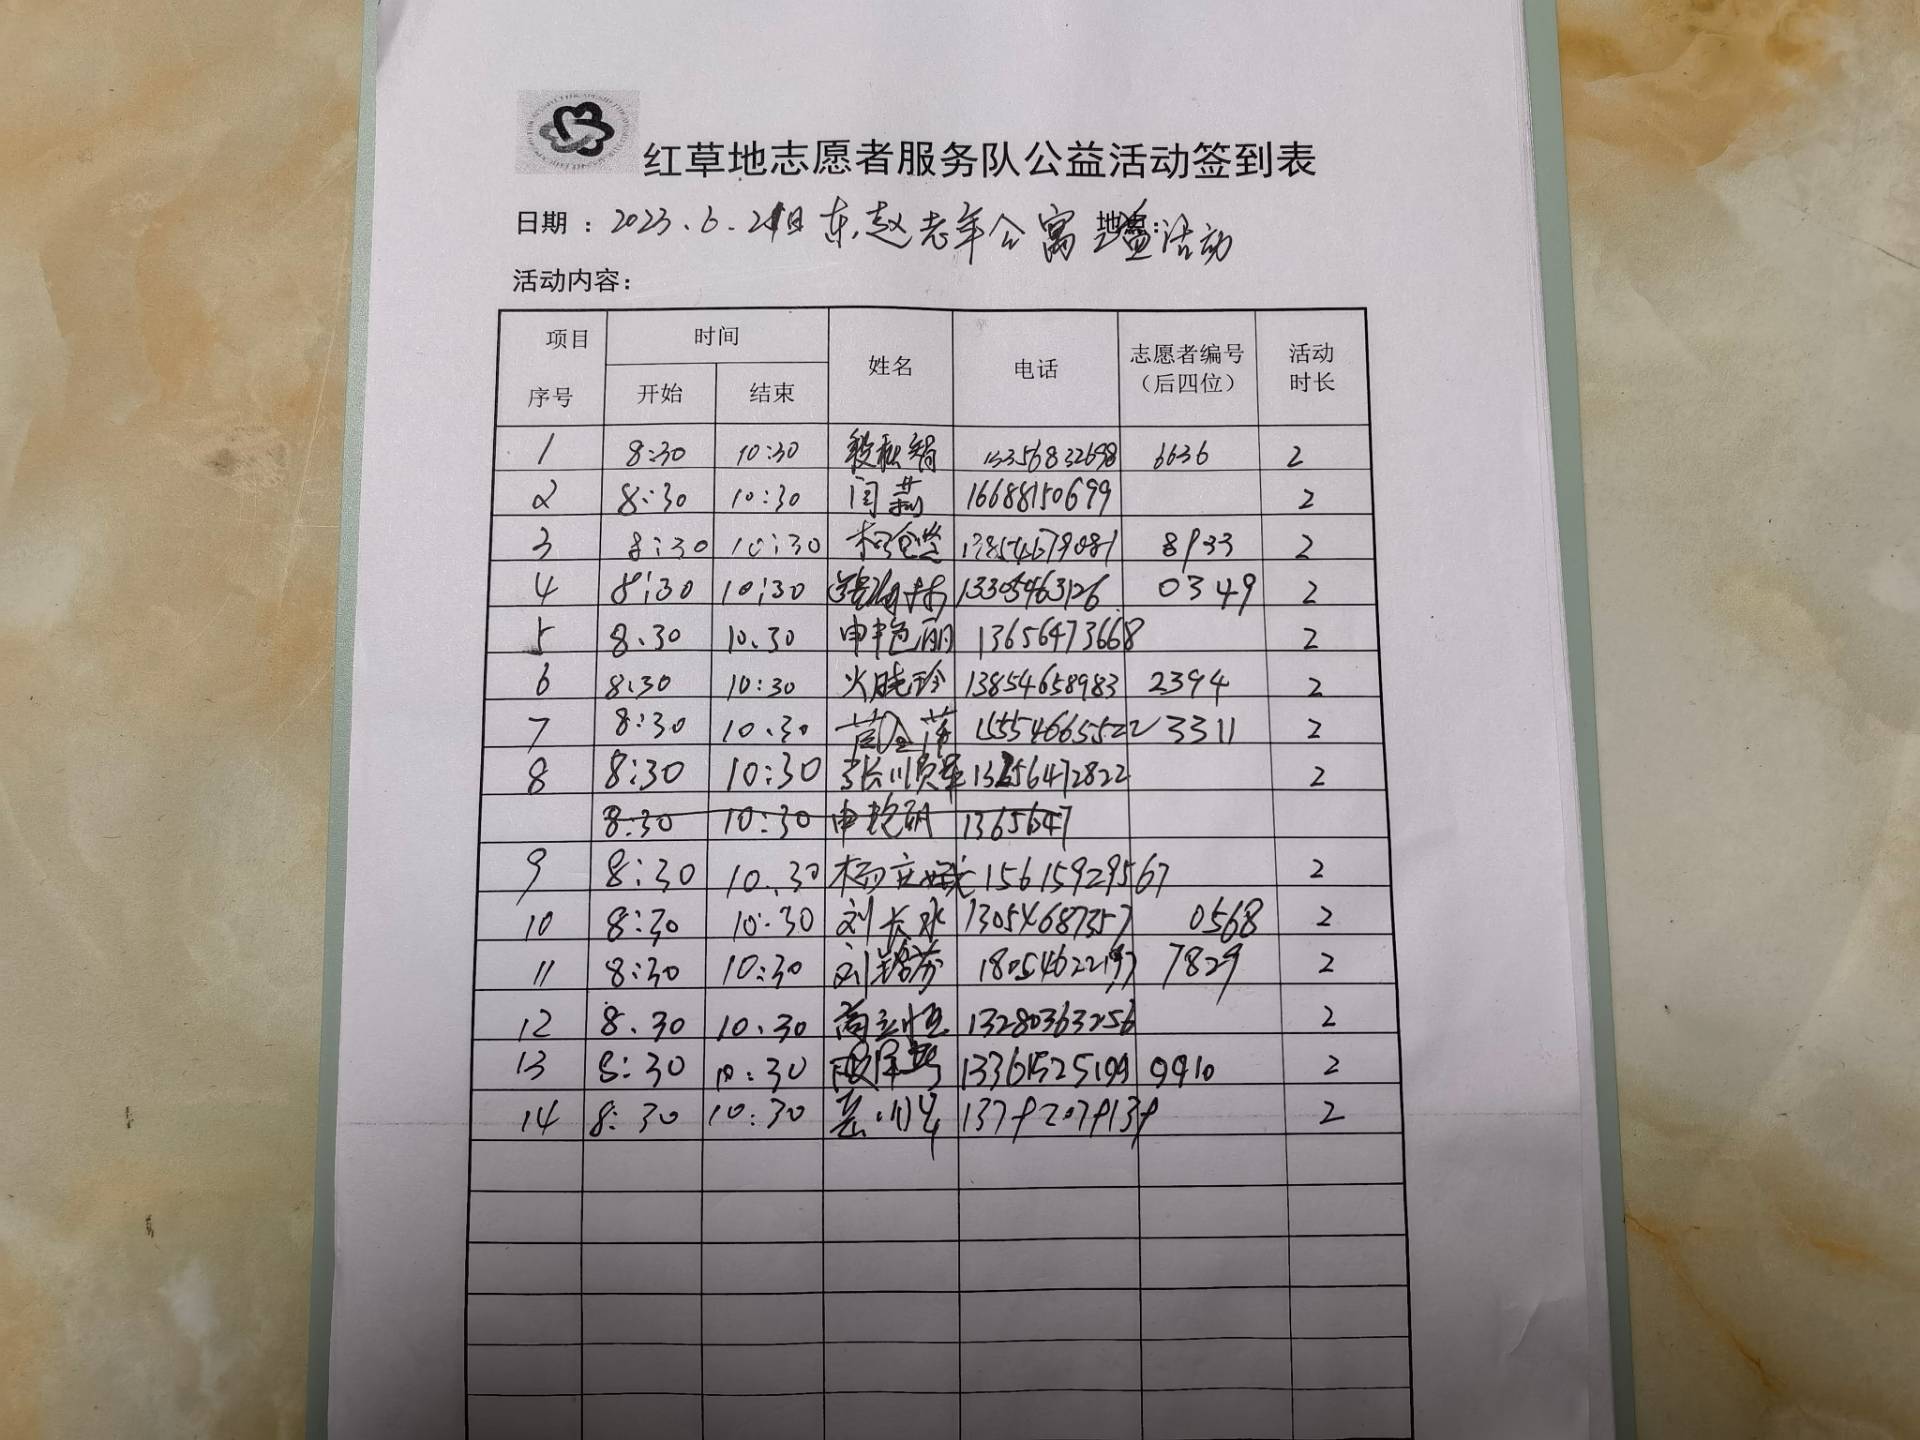 红草地志愿者服务队公益活动签到表
日期 : 2023.6.21日 东赵老年公寓 地点: 公益活动
活动内容:
项目 时间 姓名 电话 志愿者编号 活动
序号 开始 结束 (后四位) 时长
1 8:30 10:30 13356832698 6636 2
2 8:30 10:30 闫燕 16688150699 2
3 8:30 10:30 13854679081 8933 2
4 8:30 10:30 13305463126 0349 2
5 8.30 10.30 申艳丽 13656473668 2
6 8.30 10:30 火晓玲 13854658983 2394 2
7 8:30 10.30 15554665522 3311 2
8 8:30 10:30 13656472822 2
8:30 10:30 申艳丽 1365647
9 8:30 10.30 杨立斌 15615929567 2
10 8:30 10:30 刘长水 13054687357 0568 2
11 8:30 10:30 刘铭芬 18054622197 7829 2
12 8.30 10.30 高立恒 13280363256 2
13 8:30 10:30 13361525199 9910 2
14 8:30 10:30 13792079139 2